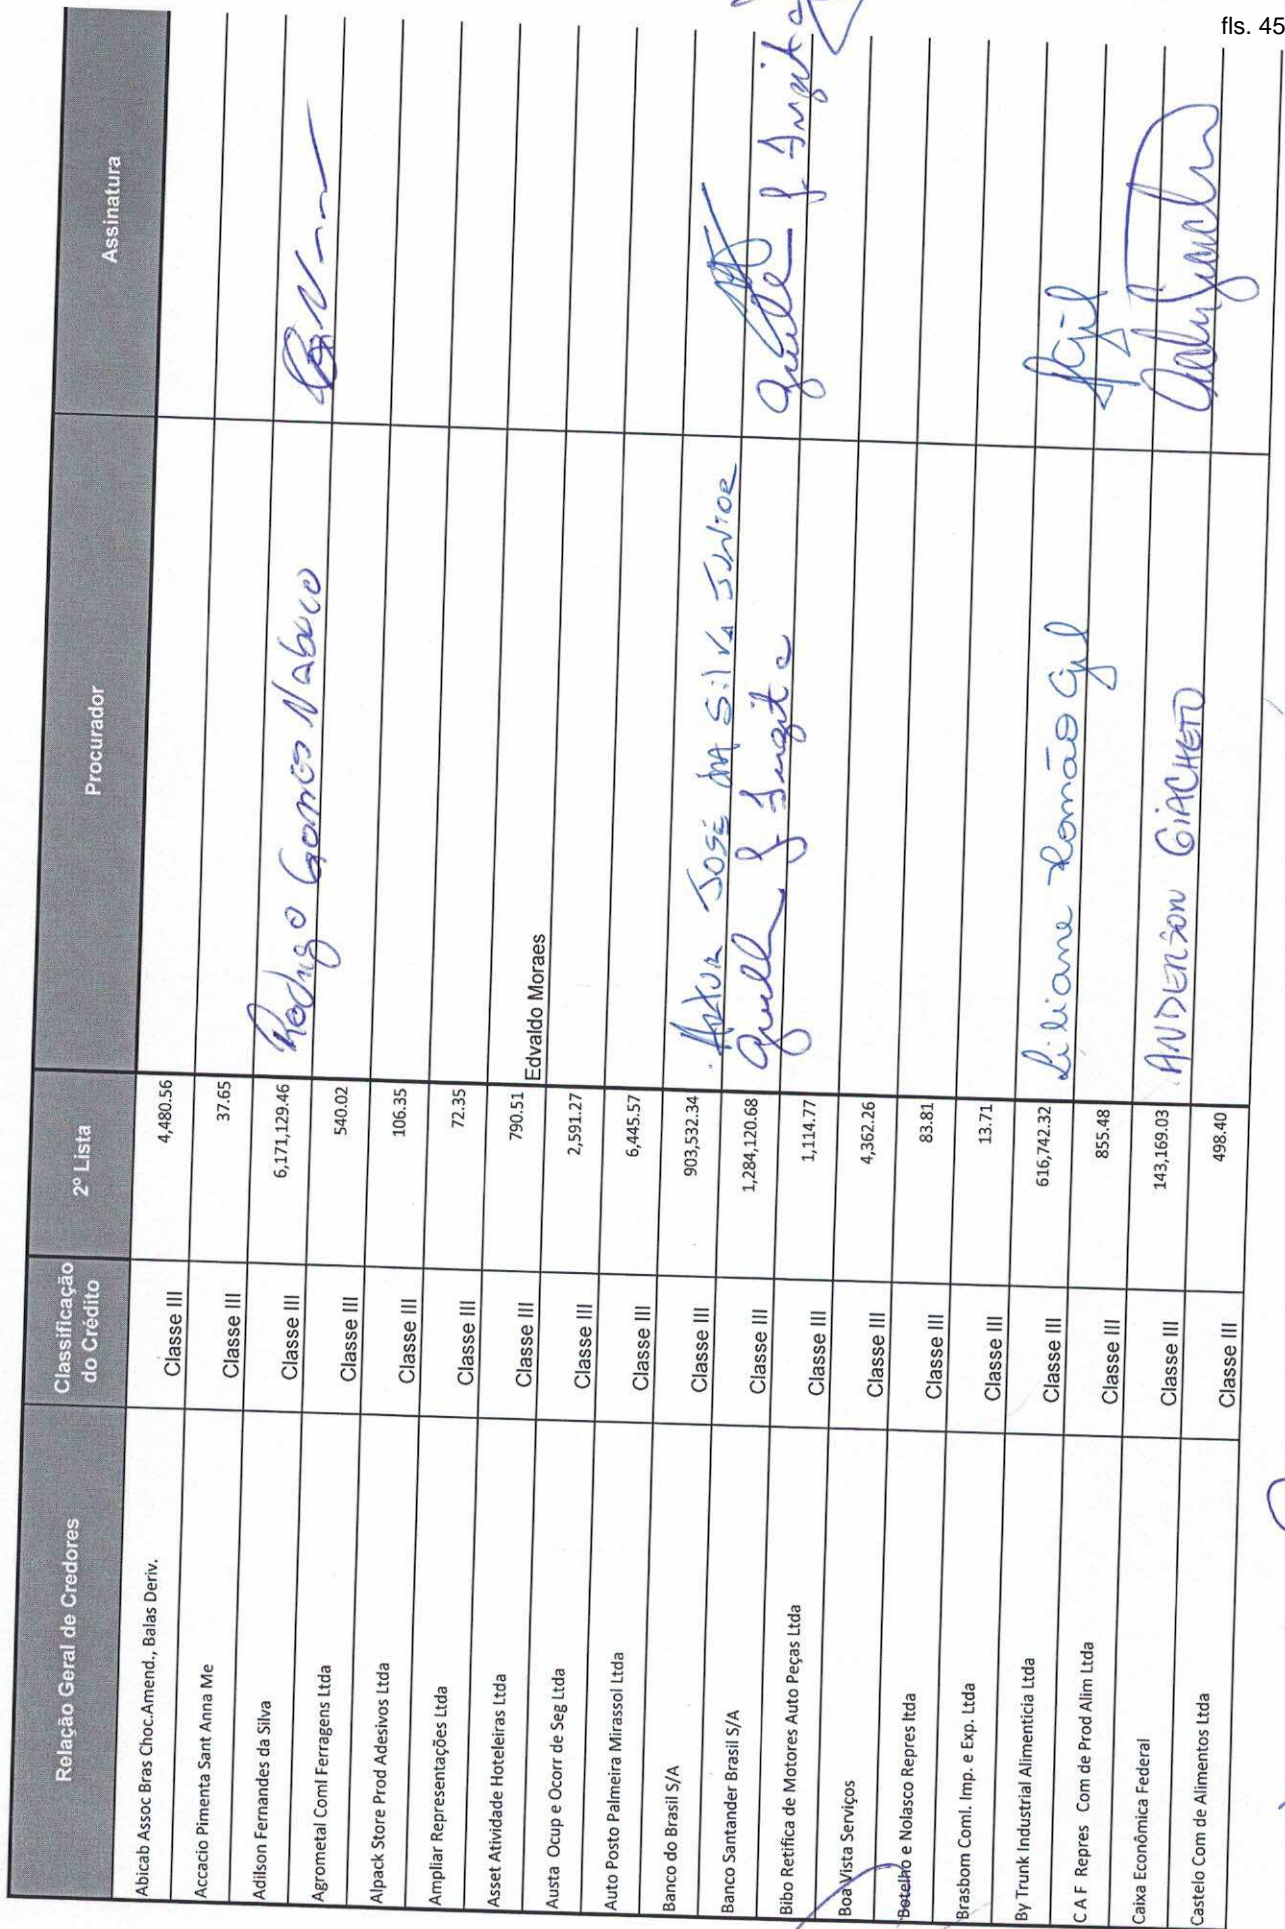 fls. 45
Relação Geral de Credores Classificação do Crédito 2º Lista Procurador Assinatura
Abicab Assoc Bras Choc.Amend., Balas Deriv. Classe III 4,480.56
Accacio Pimenta Sant Anna Me Classe III 37.65
Adilson Fernandes da Silva Classe III 6,171,129.46 Rodrigo Gomes Nabuco
Agrometal Coml Ferragens Ltda Classe III 540.02
Alpack Store Prod Adesivos Ltda Classe III 106.35
Ampliar Representações Ltda Classe III 72.35
Asset Atividade Hoteleiras Ltda Classe III 790.51 Edvaldo Moraes
Austa Ocup e Ocorr de Seg Ltda Classe III 2,591.27
Auto Posto Palmeira Mirassol Ltda Classe III 6,445.57
Banco do Brasil S/A Classe III 903,532.34 Artur José da Silva Junior
Banco Santander Brasil S/A Classe III 1,284,120.68
Bibo Retifica de Motores Auto Peças Ltda Classe III 1,114.77
Boa Vista Serviços Classe III 4,362.26
Botelho e Nolasco Repres ltda Classe III 83.81
Brasbom Coml. Imp. e Exp. Ltda Classe III 13.71
By Trunk Industrial Alimenticia Ltda Classe III 616,742.32 Liliane Romão Gil
C A F Repres Com de Prod Alim Ltda Classe III 855.48
Caixa Econômica Federal Classe III 143,169.03 ANDERSON GIACHETO
Castelo Com de Alimentos Ltda Classe III 498.40